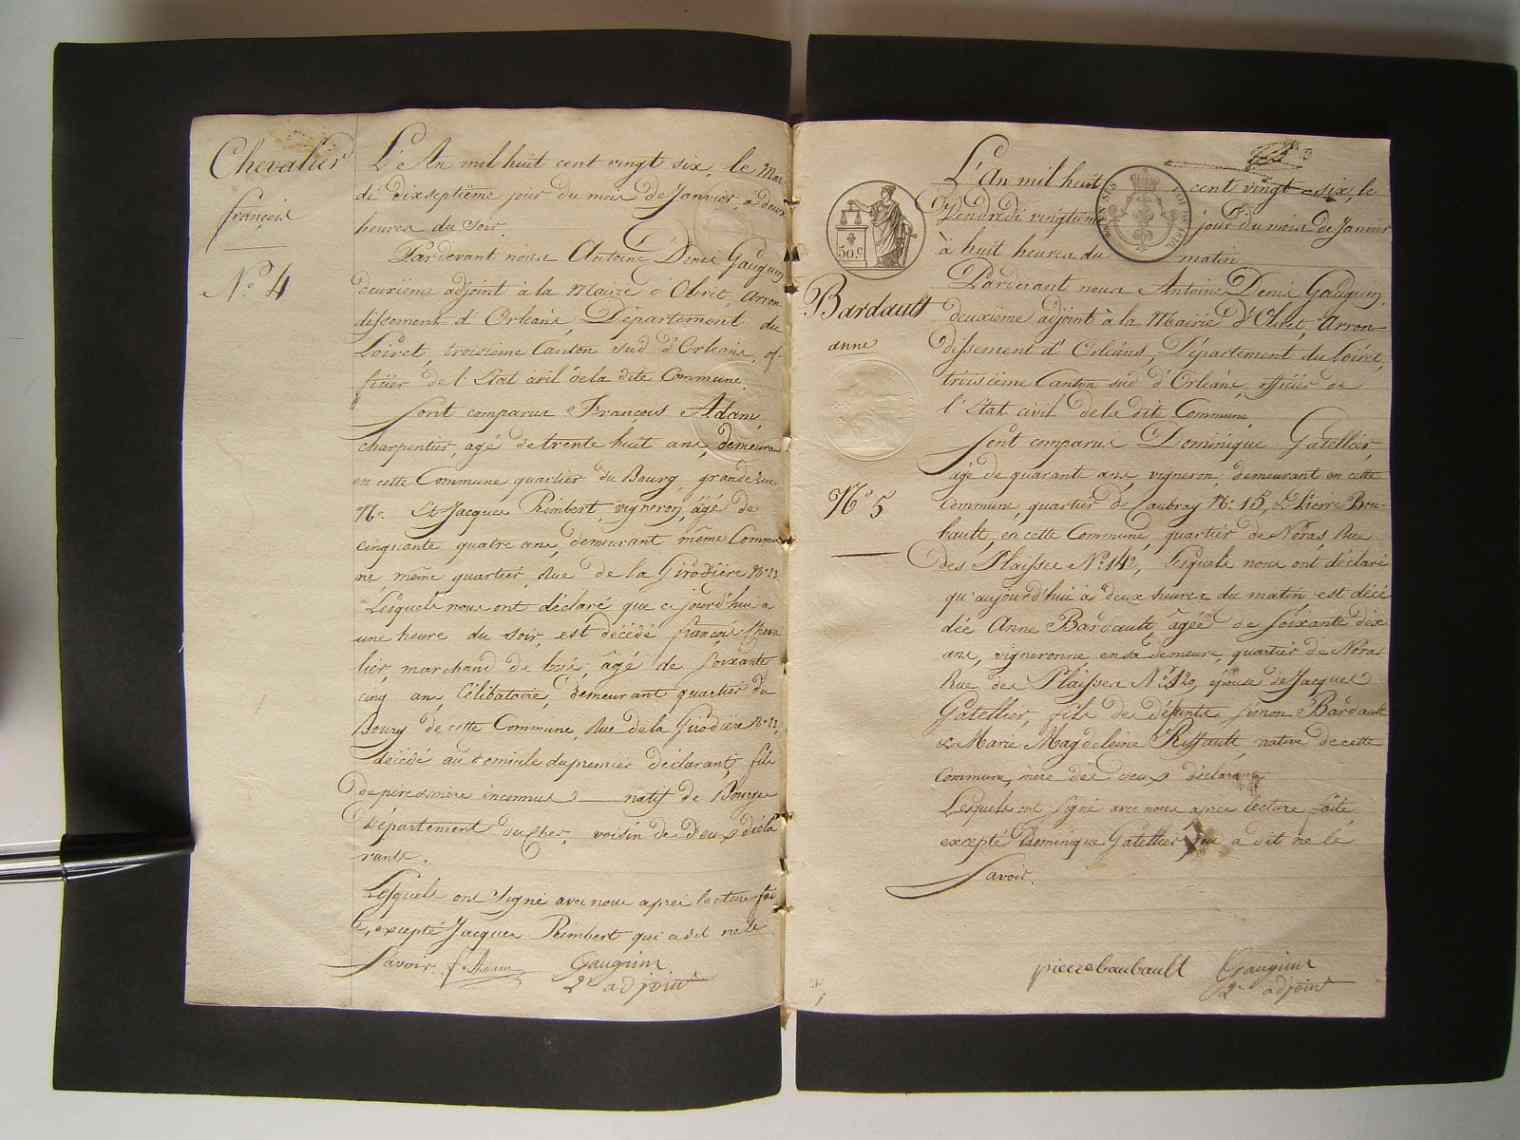 Chevalier
françois
N.° 4
L'An mil huit cent vingt six, le Mar
di dixseptième jour du mois de Janvier, à deux
heures du soir.
Pardevant nous Antoine Denis Gauguin
deuxième adjoint à la Mairie d'Olivet, Arron
dissement d'Orléans, Département du
Loiret, troisième Canton sud d'Orléans, of-
ficier de l'Etat civil de la dite Commune.
Sont comparus François Adam,
charpentier, agé de trente huit ans, demeurant
en cette Commune quartier du Bourg, grande rue
N.° Et Jacques Rimbert, vigneron, âgé de
cinquante quatre ans, demeurant même Commu
ne même quartier, Rue de la Girodière N.° 22
Lesquels nous ont déclaré que cejourd'hui à
une heure du soir, est décédé françois Cheva
lier, marchand de , âgé de soixante
cinq ans, Célibataire, demeurant quartier du
Bourg de cette Commune, Rue de la Girodière N.° 22,
décédé au domicile du premier déclarant, fils
de père & mère inconnus natif de Bourges
Département du Cher, voisin de deux décla
rants.
Lesquels ont signé avec nous après lecture fai
te, excepté Jacques Rimbert qui a dit ne le
Savoir. f. Adam Gauguin
2.e adjoint
3
L'An mil huit cent vingt-six, le
Vendredi vingtième jour du mois de Janvier
à huit heures du matin
50.c
Bardault
anne
N.° 5
Pardevant nous Antoine Denis Gauguin,
deuxième adjoint à la Mairie d'Olivet, Arron-
dissement d'Orléans, Département du Loiret,
troisième Canton sud d'Orléans, officier de
l'Etat civil de la dite Commune,
Sont comparus Dominique Gatellier,
agé de quarante ans vigneron demeurant en cette
Commune, quartier de Caubray N.° 15, & Pierre Bau-
bault, en cette Commune, quartier de Noras, Rue
des Plaisses N.° 142, Lesquels nous ont déclaré
qu'aujourd'hui à deux heures du matin est décé
dée Anne Bardault, âgée de soixante dix
ans, vigneronne en sa demeure, quartier de Noras
Rue des Plaisses N.° 120, épouse de Jacques
Gatellier, fille de défunts Simon Bardault
& Marie Magdeleine Riffault, native de cette
Commune, mère des deux déclarants
Lesquels ont signé avec nous après lecture faite
excepté Dominique Gatellier qui a dit ne le
Savoir.
pierre baubault Gauguin
2.e adjoint